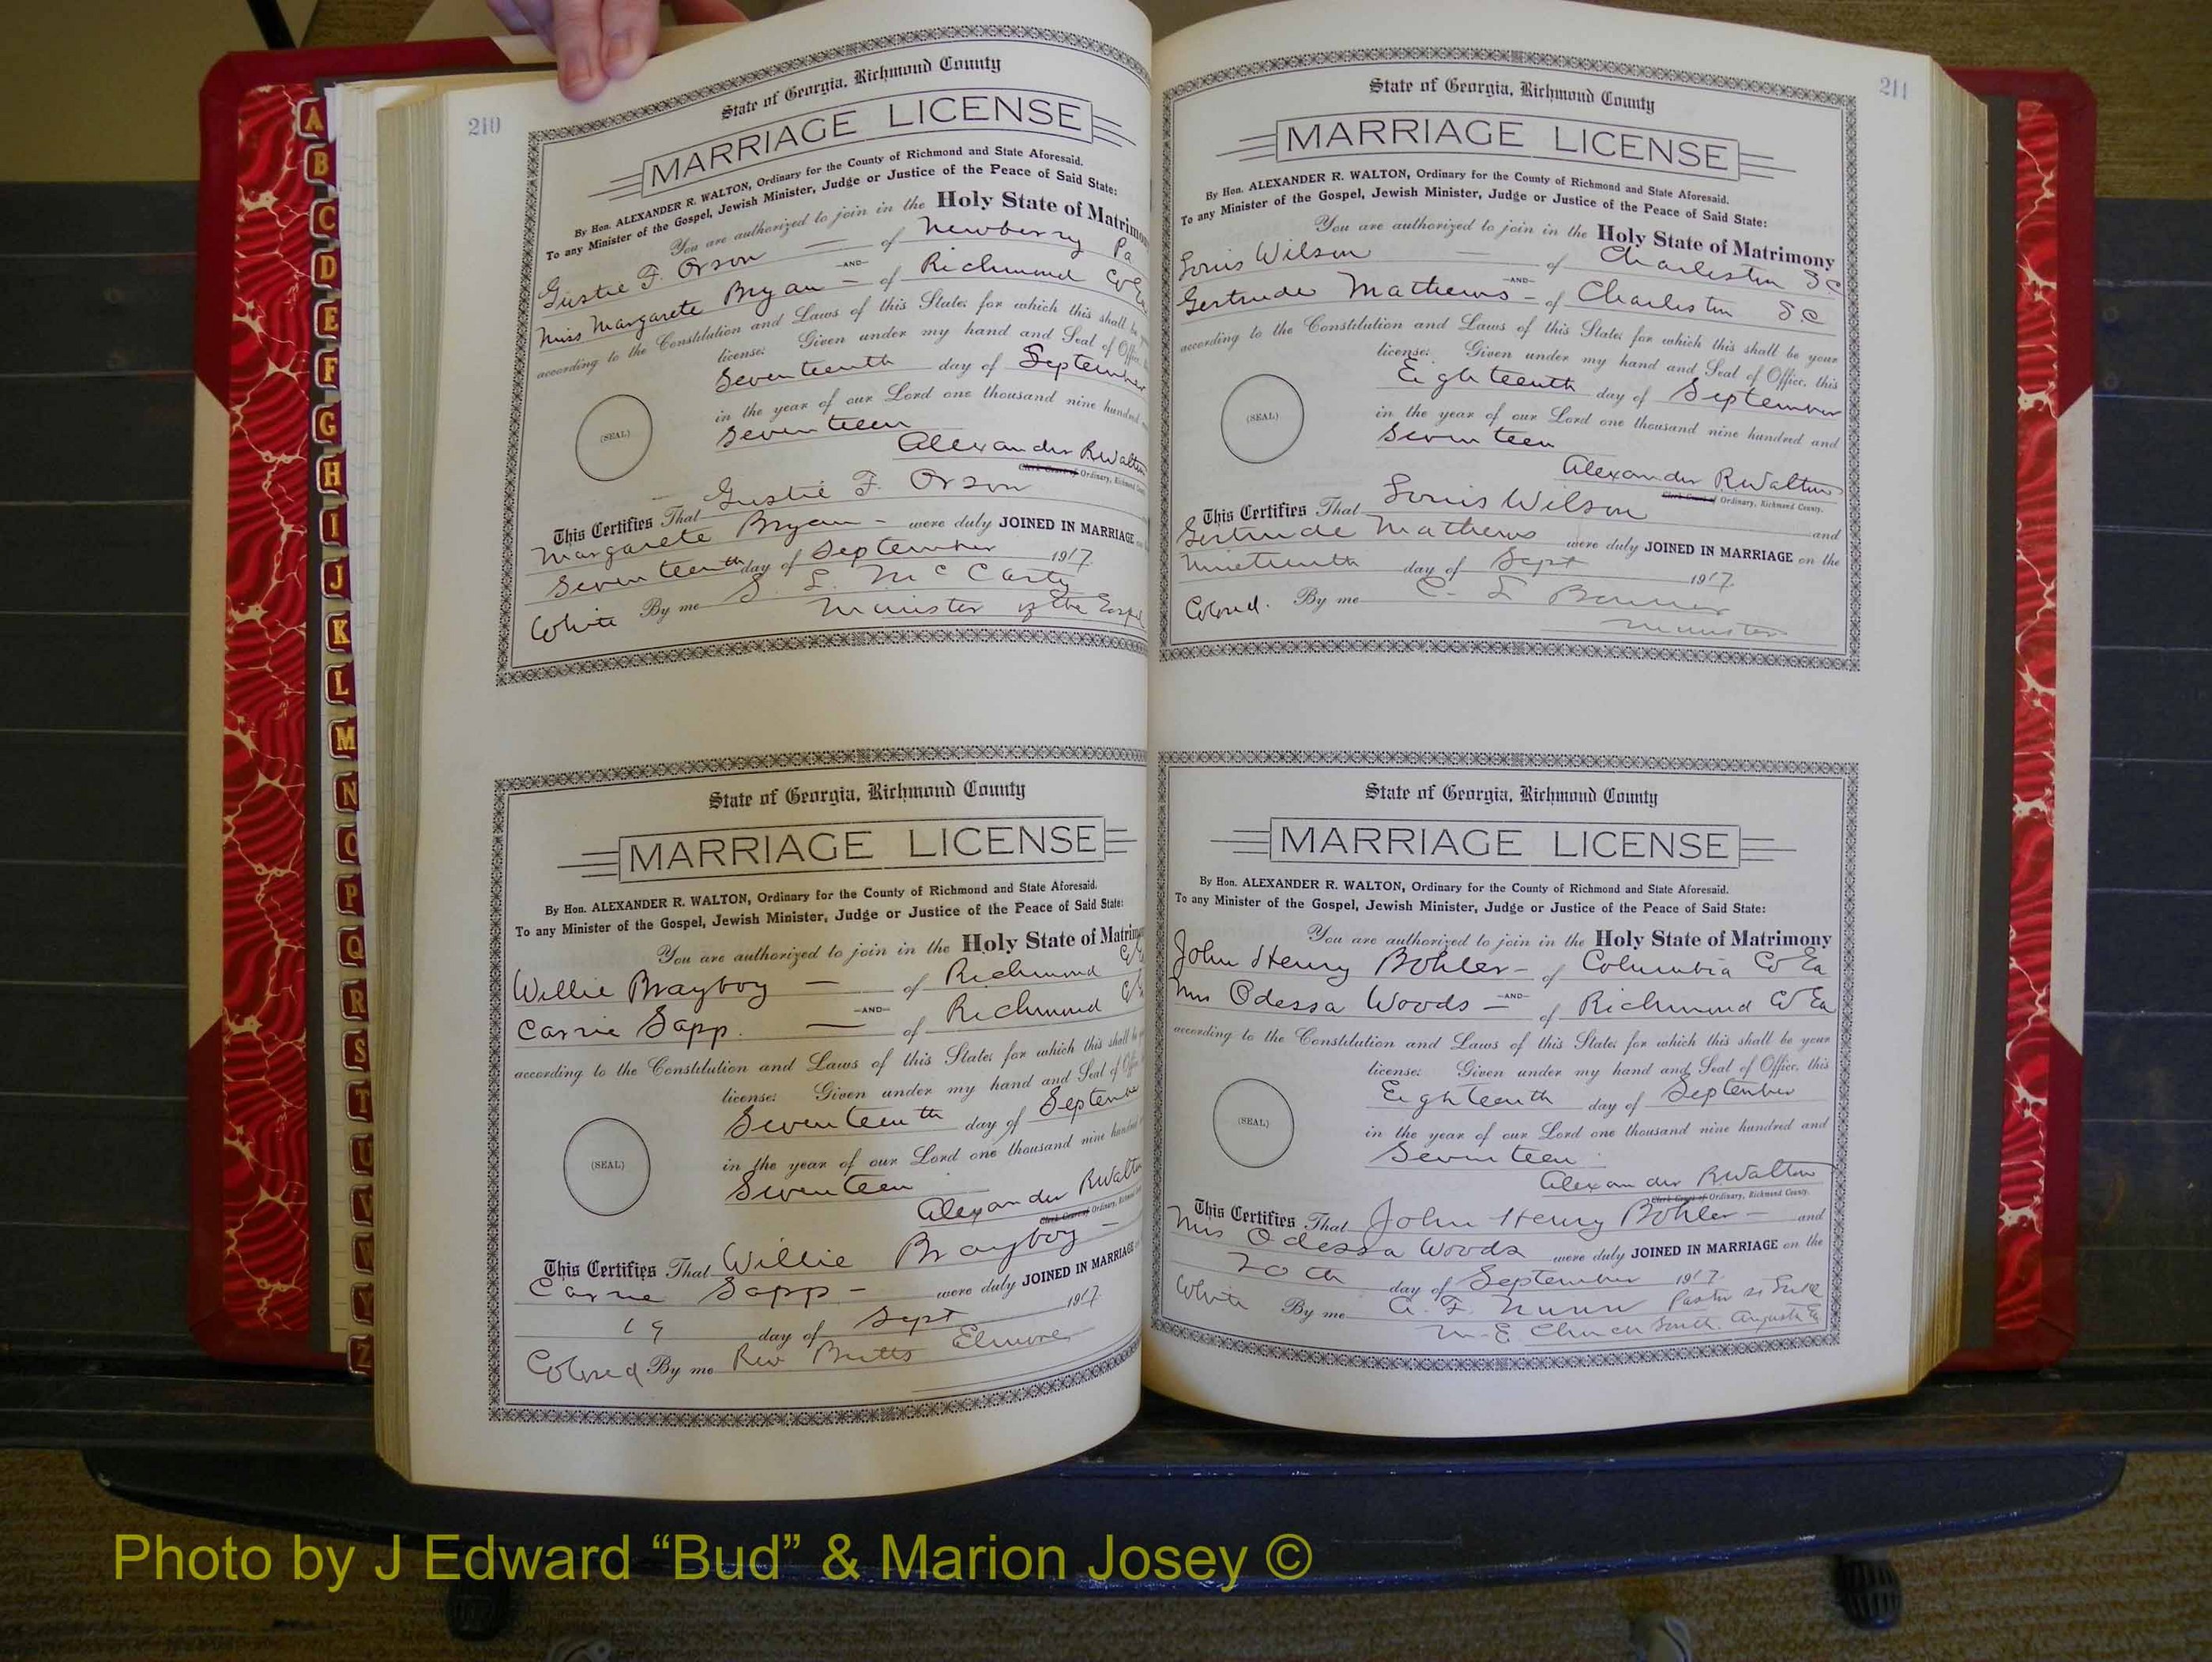 A
B
C
D
E
F
G
H
I
J
K
L
M
N
O
P
Q
R
S
T
U
V
W
Y
Z
210
State of Georgia, Richmond County
MARRIAGE LICENSE
By Hon. ALEXANDER R. WALTON, Ordinary for the County of Richmond and State Aforesaid.
To any Minister of the Gospel, Jewish Minister, Judge or Justice of the Peace of Said State:
You are authorized to join in the Holy State of Matrimo
Gustie F. Orson — of Newberry Pa
—AND—
Miss Margarete Bryan — of Richmond Co
according to the Constitution and Laws of this State; for which this shall be
license: Given under my hand and Seal of Office,
Seventeenth day of September
in the year of our Lord one thousand nine hundred
Seventeen
(SEAL)
Alexander R Walton
Clerk Court of Ordinary, Richmond
This Certifies That Gustie F. Orson
Margarete Bryan — were duly JOINED IN MARRIAGE
Seventeenth day of September 1917
White By me S. L. McCarty
Minister of the Gospel
State of Georgia, Richmond County
MARRIAGE LICENSE
By Hon. ALEXANDER R. WALTON, Ordinary for the County of Richmond and State Aforesaid.
To any Minister of the Gospel, Jewish Minister, Judge or Justice of the Peace of Said State:
You are authorized to join in the Holy State of Matrim
Willie Brayboy — of Richmond
—AND—
Carrie Sapp. — of Richmond
according to the Constitution and Laws of this State; for which this shall be
license: Given under my hand and Seal of
Seventeenth day of Septembe
in the year of our Lord one thousand nine hundred
Seventeen
(SEAL)
Alexander R Walton
Clerk Court of Ordinary, Richmond
This Certifies That Willie Brayboy —
Carrie Sapp — were duly JOINED IN MARRIAGE
19 day of Sept 1917
Colored By me Rev Butts Elmore
211
State of Georgia, Richmond County
MARRIAGE LICENSE
By Hon. ALEXANDER R. WALTON, Ordinary for the County of Richmond and State Aforesaid.
To any Minister of the Gospel, Jewish Minister, Judge or Justice of the Peace of Said State:
You are authorized to join in the Holy State of Matrimony
Louis Wilson — of Charleston S C
—AND—
Gertrude Mathews — of Charleston S.C
according to the Constitution and Laws of this State; for which this shall be your
license: Given under my hand and Seal of Office, this
Eighteenth day of September
in the year of our Lord one thousand nine hundred and
Seventeen
(SEAL)
Alexander R. Walton
Clerk Court of Ordinary, Richmond County.
This Certifies That Louis Wilson and
Gertrude Mathews were duly JOINED IN MARRIAGE on the
Nineteenth day of Sept 1917
Colored. By me C. L Bonner
Minister
State of Georgia, Richmond County
MARRIAGE LICENSE
By Hon. ALEXANDER R. WALTON, Ordinary for the County of Richmond and State Aforesaid.
To any Minister of the Gospel, Jewish Minister, Judge or Justice of the Peace of Said State:
You are authorized to join in the Holy State of Matrimony
John Henry Bohler — of Columbia Co Ga
—AND—
Mrs Odessa Woods — of Richmond Co Ga
according to the Constitution and Laws of this State; for which this shall be your
license: Given under my hand and Seal of Office, this
Eighteenth day of September
in the year of our Lord one thousand nine hundred and
Seventeen
(SEAL)
Alexander R. Walton
Clerk Court of Ordinary, Richmond County.
This Certifies That John Henry Bohler — and
Mrs Odessa Woods were duly JOINED IN MARRIAGE on the
20th day of September 1917
White By me A. F. Nunn Pastor
M. E Church South. Augusta Ga
Photo by J Edward “Bud” & Marion Josey ©